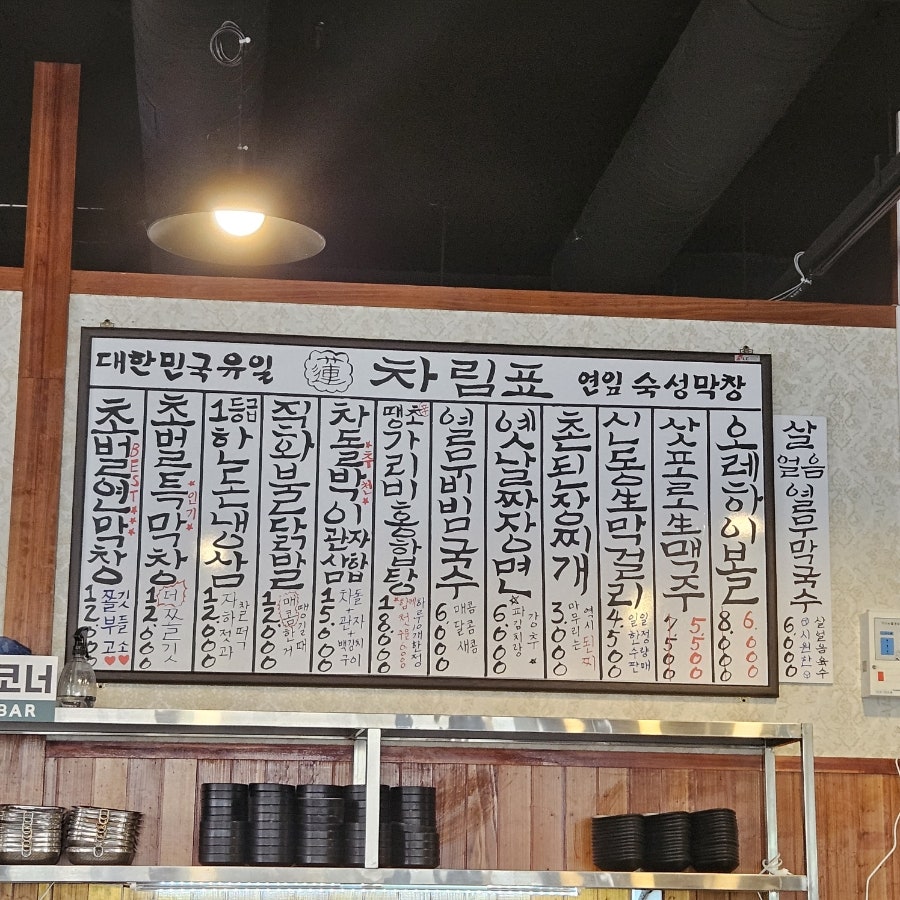 대한민국유일 蓮 차림표 연잎 숙성막창
초벌연막창
BEST
쫄깃
부들
고소
초벌특막창
인기
더
쫄깃
12.000
1등급
한돈냉삼
12.000
직화불닭발
매콤
12.000
차돌박이관자삼합
추천
차돌
관자
15.000
땡초가리비홍합탕
18.000
열무비빔국수
매콤
달콤
새콤
6.000
옛날짜장면
강추
파김치랑
6.000
촌된장찌개
역시 된찌
마무리는
3.000
신동生막걸리
일일한정
4.500
삿포로生맥주
5500
7.500
오레하이볼
6.000
8.000
살얼음 열무막국수
살얼음육수
시원한
6.000
코너
BAR